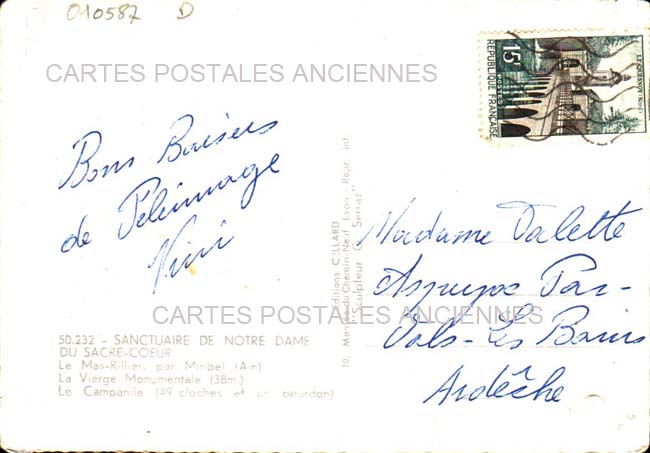 010587 D
CARTES POSTALES ANCIENNES
15F
POSTES
REPUBLIQUE FRANÇAISE
LE QUESNOY (Nord)
Bons Baisers
de Pélerinage
Vivi
Editions CELLARD
10, Montée du Chemin-Neuf Lyon - Repr. int.
Sculpteur G. Serraz
Madame Valette
Par-
Vals-Les Bains
Ardêche
CARTES POSTALES ANCIENNES
50.232 - SANCTUAIRE DE NOTRE DAME
DU SACRE-COEUR
Le Mas-Rillier, par Miribel (Ain)
La Vierge Monumentale (38m.)
Le Campanile (49 cloches et un bourdon)